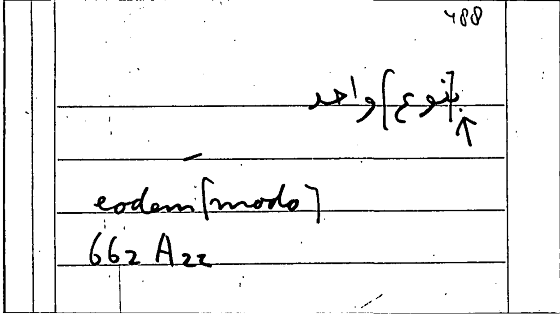 488
بنوع] واحد]
eodem [modo]
662 A22